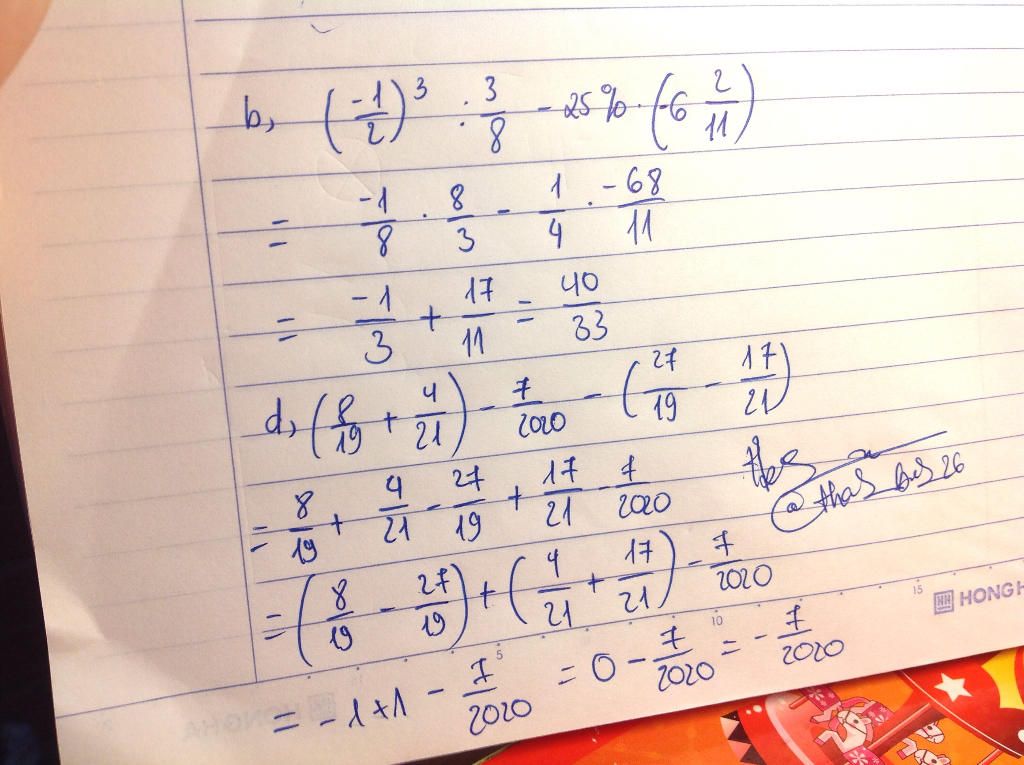 b, (-1/2)^3 : 3/8 - 25% . (-6 2/11)
= -1/8 . 8/3 - 1/4 . -68/11
= -1/3 + 17/11 = 40/33
d, (8/19 + 4/21) - 7/2020 - (27/19 - 17/21)
= 8/19 + 4/21 - 27/19 + 17/21 - 7/2020
= (8/19 - 27/19) + (4/21 + 17/21) - 7/2020
= -1+1 - 7/2020 = 0 - 7/2020 = - 7/2020
5 10 15
HH HONGH